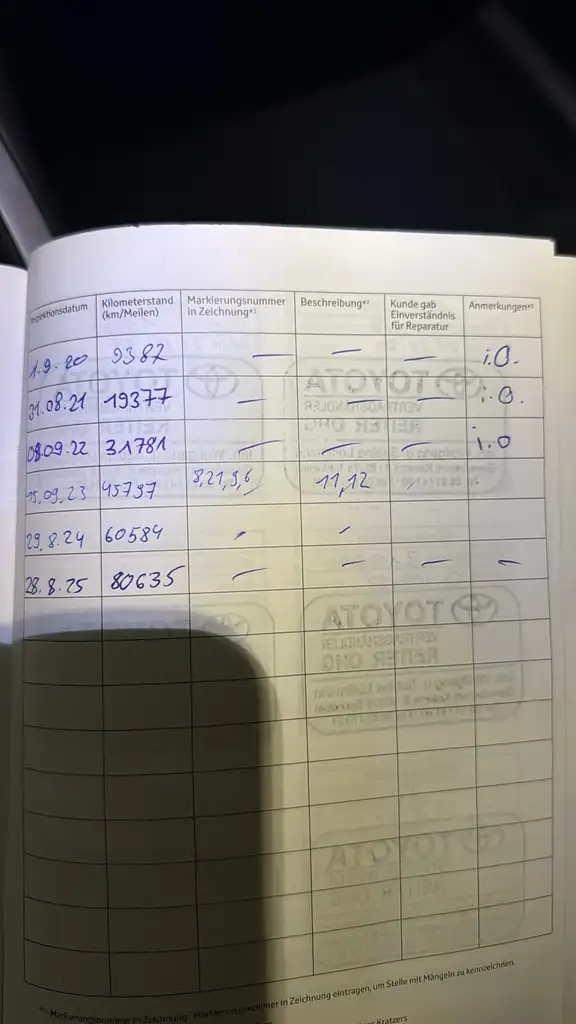 Inspektionsdatum Kilometerstand (km/Meilen) Markierungsnummer in Zeichnung*¹ Beschreibung*² Kunde gab Einverständnis für Reparatur Anmerkungen*³
1.9.20 9382 — — — i.O.
31.08.21 19377 — — — i.O.
08.09.22 31781 — — — i.O
15.09.23 45797 8,21,9,6 11,12
29.8.24 60584
28.8.25 80635 — — — —
TOYOTA
VERTRAGSHÄNDLER
REITER OHG
TOYOTA
VERTRAGSHÄNDLER
REITER OHG
TOYOTA
*¹ Markierungsnummer in Zeichnung: Markierungsnummer in Zeichnung eintragen, um Stelle mit Mängeln zu kennzeichnen.
Kratzers